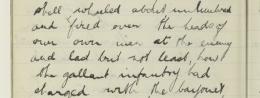 shell wheeled about unlimbered
and fired over the heads of
our own men at the enemy
and last but not least, how
the gallant infantry had
charged with the bayonet